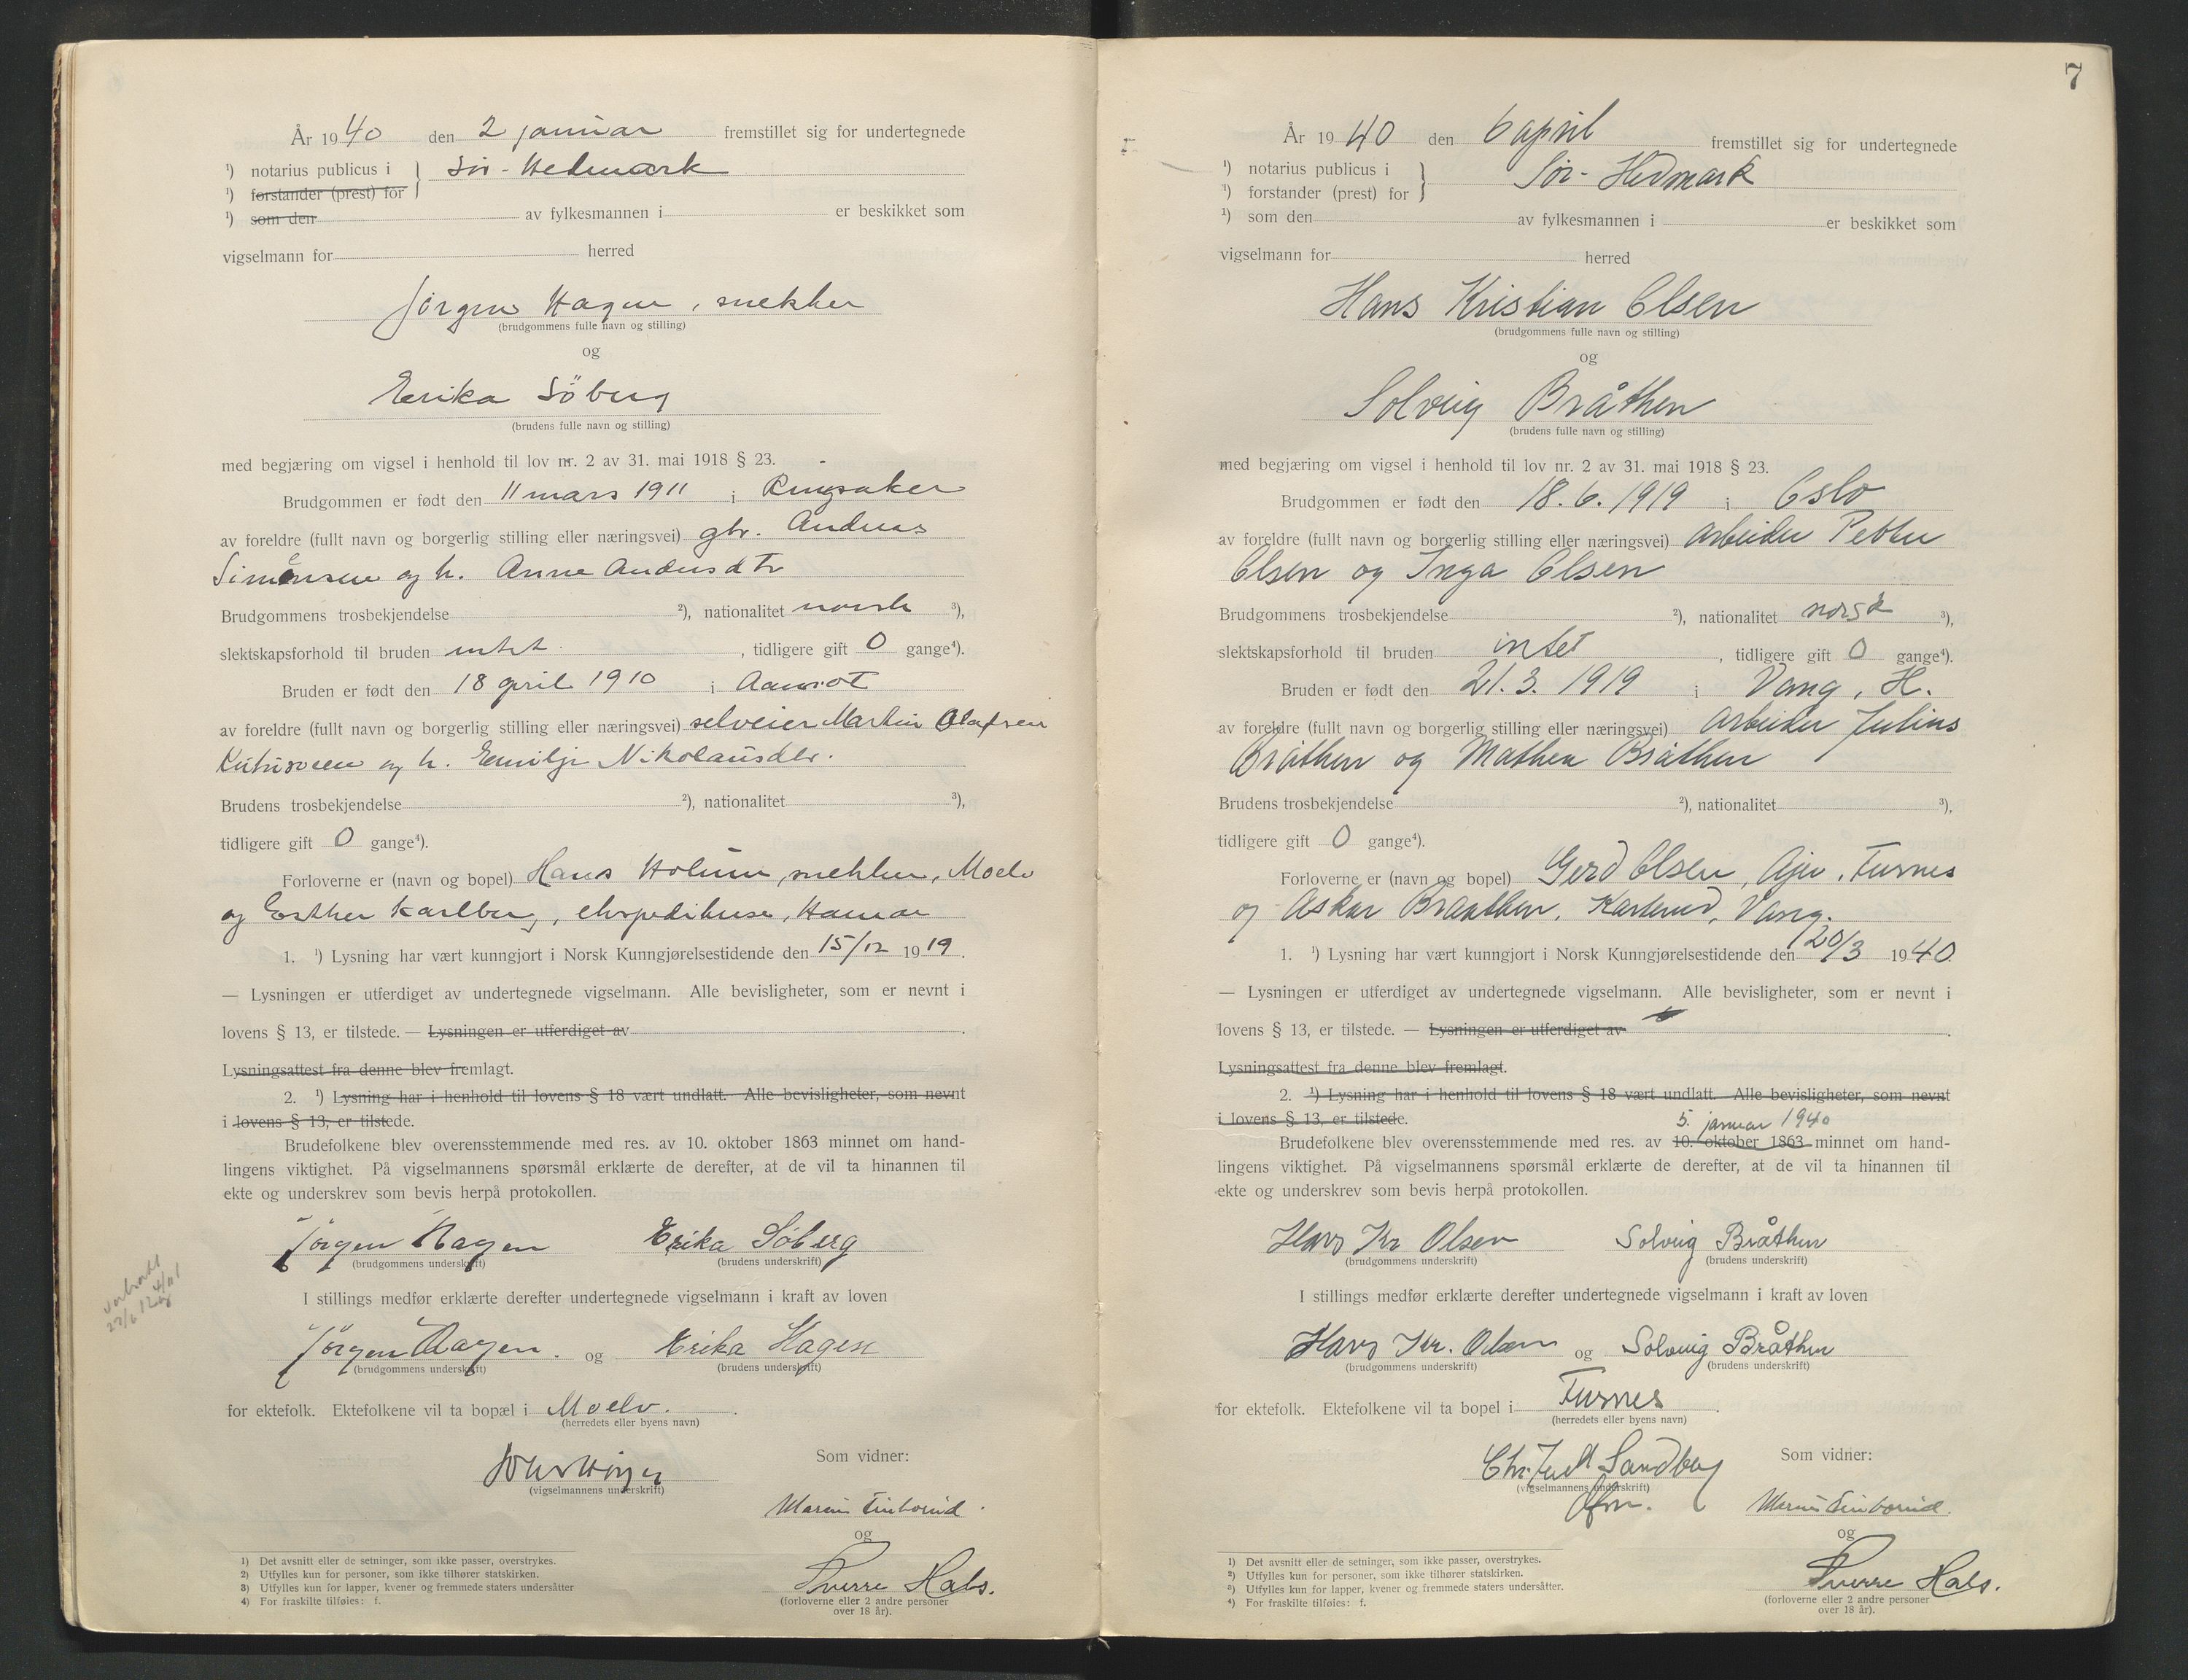 År 1940 den 2 januar fremstillet sig for undertegnede
¹) notarius publicus i } Sör-Hedmark
¹) forstander (prest) for
¹) som den av fylkesmannen i er beskikket som
vigselmann for herred
Jörgen Hagen, snekker
(brudgommens fulle navn og stilling)
og
Erika Söberg
(brudens fulle navn og stilling)
med begjæring om vigsel i henhold til lov nr. 2 av 31. mai 1918 § 23.
Brudgommen er født den 11 mars 1911 i Ringsaker
av foreldre (fullt navn og borgerlig stilling eller næringsvei) gbr. Andreas
Simensen og h. Anne Andersdtr
Brudgommens trosbekjendelse ²), nationalitet norsk ³),
slektskapsforhold til bruden intet , tidligere gift 0 gange⁴).
Bruden er født den 18 april 1910 i Aamot
av foreldre (fullt navn og borgerlig stilling eller næringsvei) selveier Martin Olafsen
og h. Emilje Nikolausdtr.
Brudens trosbekjendelse ²), nationalitet ³),
tidligere gift 0 gange⁴).
Forloverne er (navn og bopel) Hans Holum, snekker, Moelv
og Esther Karlberg, ekspeditrise, Hamar
1. ¹) Lysning har vært kunngjort i Norsk Kunngjørelsestidende den 15/12 1919.
— Lysningen er utferdiget av undertegnede vigselmann. Alle bevisligheter, som er nevnt i
lovens § 13, er tilstede. — Lysningen er utferdiget av .
Lysningsattest fra denne blev fremlagt.
2. ¹) Lysning har i henhold til lovens § 18 vært undlatt. Alle bevisligheter, som nevnt
i lovens § 13, er tilstede.
Brudefolkene blev overensstemmende med res. av 10. oktober 1863 minnet om hand-
lingens viktighet. På vigselmannens spørsmål erklærte de derefter, at de vil ta hinannen til
ekte og underskrev som bevis herpå protokollen.
Jörgen Hagen Erika Söberg
(brudgommens underskrift) (brudens underskrift)
I stillings medfør erklærte derefter undertegnede vigselmann i kraft av loven
Jörgen Hagen. og Erika Hagen
(brudgommens underskrift) (brudens underskrift)
for ektefolk. Ektefolkene vil ta bopæl i Moelv.
(herredets eller byens navn)
Som vidner:
(vigselmannens underskrift)
og
Sverre Hals.
(forloverne eller 2 andre personer
over 18 år).
1) Det avsnitt eller de setninger, som ikke passer, overstrykes.
2) Utfylles kun for personer, som ikke tilhører statskirken.
3) Utfylles kun for lapper, kvener og fremmede staters undersåtter
4) For fraskilte tilføies: f.
7
År 1940 den 6 april fremstillet sig for undertegnede
¹) notarius publicus i } Sör-Hedmark
¹) forstander (prest) for
¹) som den av fylkesmannen i er beskikket som
vigselmann for herred
Hans Kristian Olsen
(brudgommens fulle navn og stilling)
og
Solveig Bråthen
(brudens fulle navn og stilling)
med begjæring om vigsel i henhold til lov nr. 2 av 31. mai 1918 § 23.
Brudgommen er født den 18.6.1919 i Oslo
av foreldre (fullt navn og borgerlig stilling eller næringsvei) arbeider Petter
Olsen og Inga Olsen
Brudgommens trosbekjendelse ²), nationalitet norsk ³),
slektskapsforhold til bruden intet , tidligere gift 0 gange⁴).
Bruden er født den 21.3.1919 i Vang, H.
av foreldre (fullt navn og borgerlig stilling eller næringsvei) arbeider Julius
Bråthen og Mathea Bråthen
Brudens trosbekjendelse ²), nationalitet ³),
tidligere gift 0 gange⁴).
Forloverne er (navn og bopel) Gerd Olsen, Furnes
og Askar Braathen, Vang.
1. ¹) Lysning har vært kunngjort i Norsk Kunngjørelsestidende den 20/3 1940.
— Lysningen er utferdiget av undertegnede vigselmann. Alle bevisligheter, som er nevnt i
lovens § 13, er tilstede. — Lysningen er utferdiget av .
Lysningsattest fra denne blev fremlagt.
2. ¹) Lysning har i henhold til lovens § 18 vært undlatt. Alle bevisligheter, som nevnt
i lovens § 13, er tilstede. 5. januar 1940
Brudefolkene blev overensstemmende med res. av 10. oktober 1863 minnet om hand-
lingens viktighet. På vigselmannens spørsmål erklærte de derefter, at de vil ta hinannen til
ekte og underskrev som bevis herpå protokollen.
Hans Kr Olsen Solveig Bråthen
(brudgommens underskrift) (brudens underskrift)
I stillings medfør erklærte derefter undertegnede vigselmann i kraft av loven
Hans Kr. Olsen og Solveig Bråthen
(brudgommens underskrift) (brudens underskrift)
for ektefolk. Ektefolkene vil ta bopel i Furnes.
(herredets eller byens navn)
Sandberg Som vidner:
(vigselmannens underskrift)
og
Sverre Hals.
(forloverne eller 2 andre personer
over 18 år).
1) Det avsnitt eller de setninger, som ikke passer, overstrykes.
2) Utfylles kun for personer, som ikke tilhører statskirken.
3) Utfylles kun for lapper, kvener og fremmede staters undersåtter.
4) For fraskilte tilføies: f.